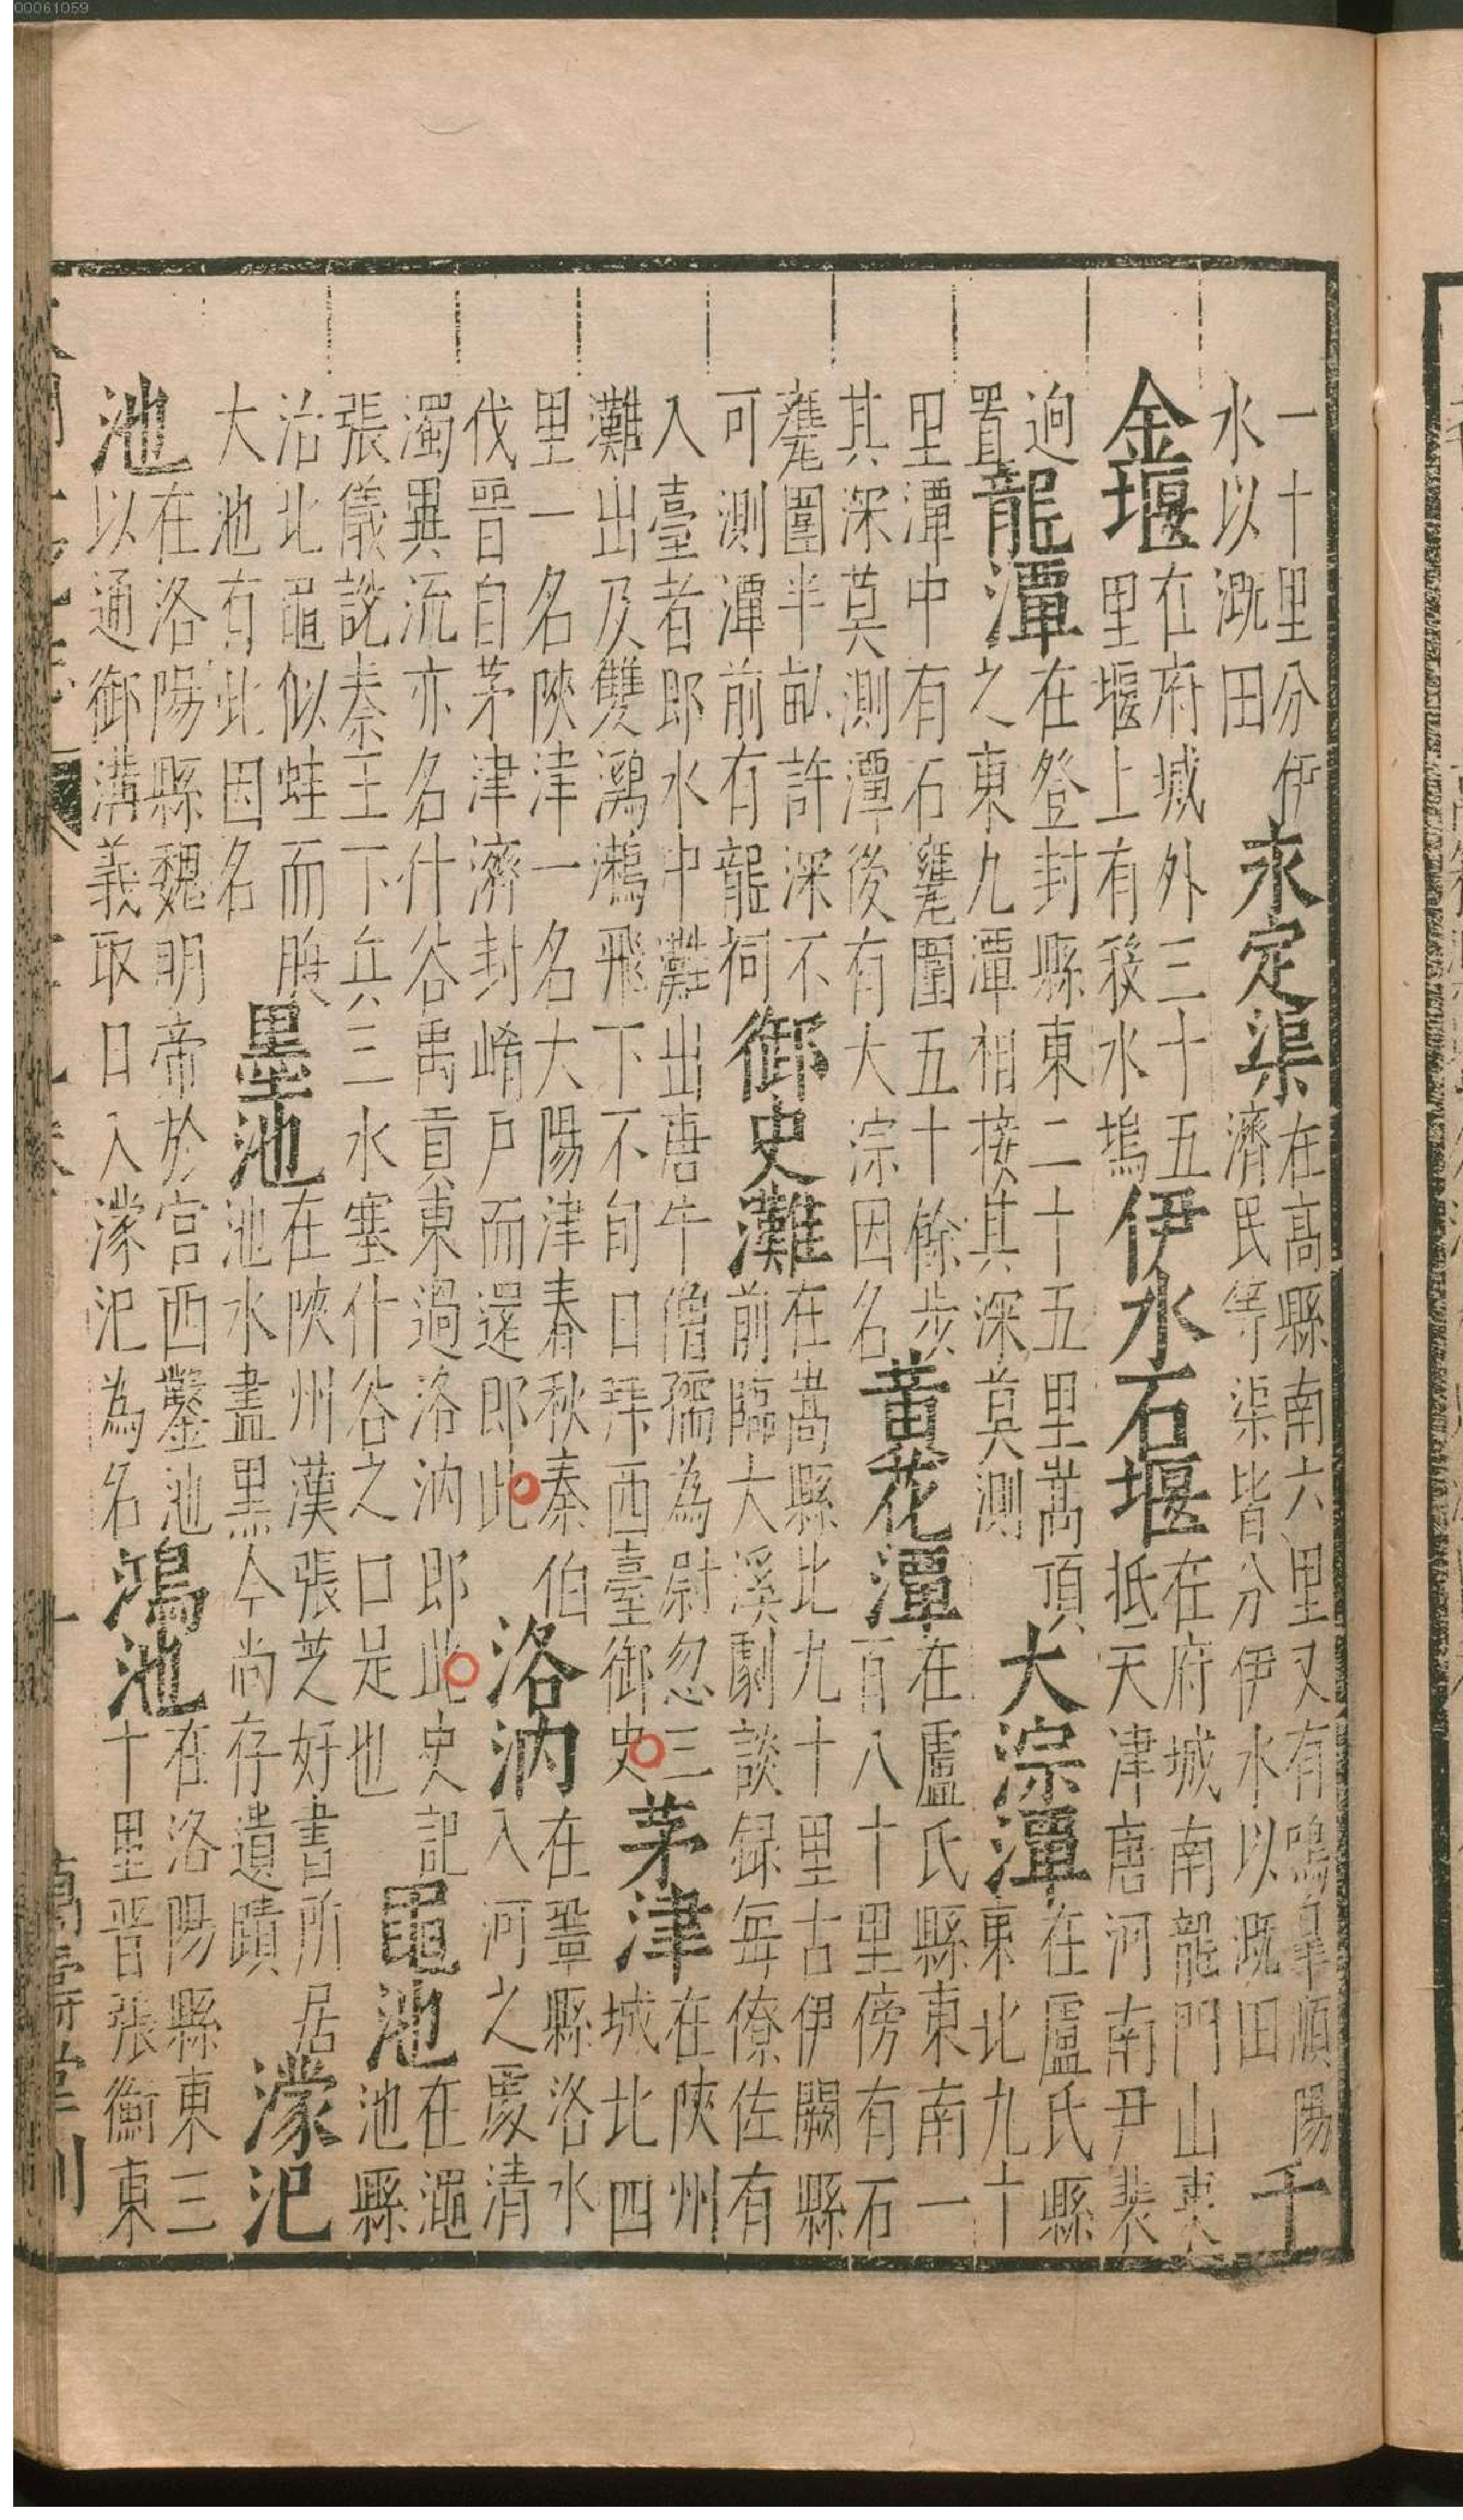 一十里分伊水以溉田永定渠在高縣南六里又有鳴臯順陽濟民等渠皆分伊水以溉田千
金堰在府城外三十五里堰上有稅水塢伊水石堰在府城南龍門山東抵天津唐河南尹裴
逈置龍潭在登封縣東二十五里嵩頂之東九潭相接其深莫測大淙潭在盧氏縣東北九十
里潭中有石甕圍五十餘步其深莫測潭後有大淙因名黃花潭在盧氏縣東南一百八十里傍有石
甕圍半畝許深不可測潭前有龍祠御史灘在嵩縣北九十里古伊闕縣前臨大溪劇談録每僚佐有
入臺者即水中灘出唐牛僧孺為尉忽三灘出及雙鸂鷘飛下不旬日拜西臺御史茅津在陝州城北四
里一名陝津一名大陽津春秋秦伯伐晉自茅津濟封崤尸而還即此洛汭在鞏縣洛水入河之處清
濁異流亦名什谷禹貢東過洛汭即此史記張儀說秦王下兵三水塞什谷之口是也黽池在澠池縣
治北黽似蛙而腴大池有此因名墨池在陝州漢張芝好書所居池水盡黑今尚存遺蹟濛汜
池在洛陽縣魏明帝於宮西鑿池以通御溝義取日入濛汜為名鴻池在洛陽縣東三十里晉張衡東
00061059